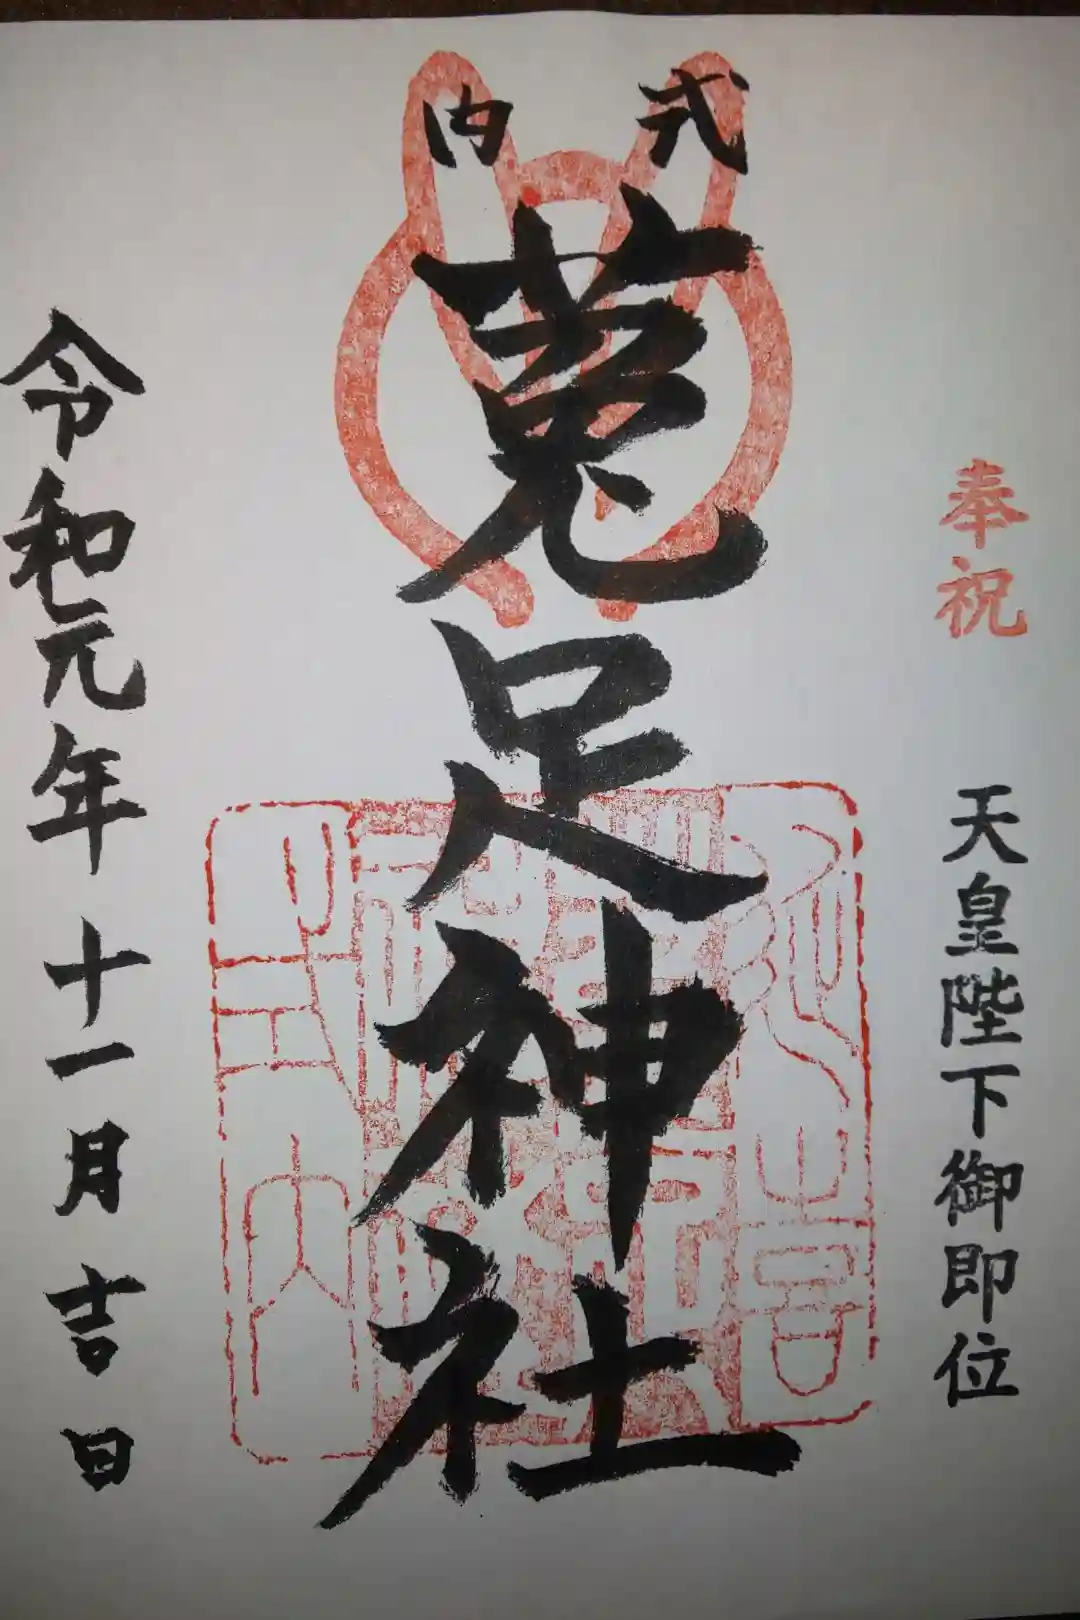 奉祝 天皇陛下御即位
式内
菟足神社
令和元年十一月吉日